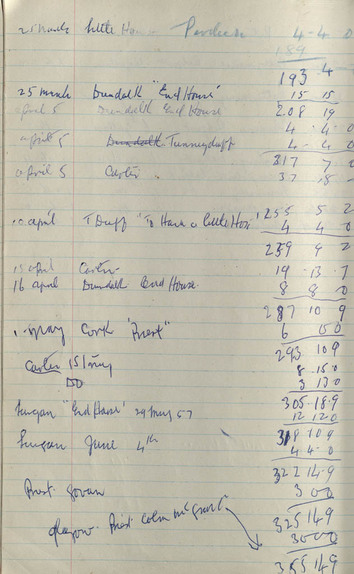 21 March Little Ho Purdies 4-4 0
189
193 4
25 march Dundalk "End House" 15 15
208 19
april 5 Dundalk End House 4.4.0
april 5 Dundalk Tunneyduff 4-4 0
217 7 0
april 5 Carter 37 18
255 5 2
10 april T Duff "To Have a Little House" 4 4 0
259 9 2
15 april Carter 19 13.7
16 april Dundalk End House 8 8 0
287 10 9
1. may Cork "Priest" 6 15 0
293 10 9
Carter 15/may 8.15.0
DO 3 13 0
305.18.9
Lurgan "End House" 29 may 57 12 12 0
318 10 9
Lurgan June 4th 4 4.0
322 14.9
Priest Govan 3 0 0
325 14 9
glasgow Priest Colm McGrant 30 0 0
355 14 9